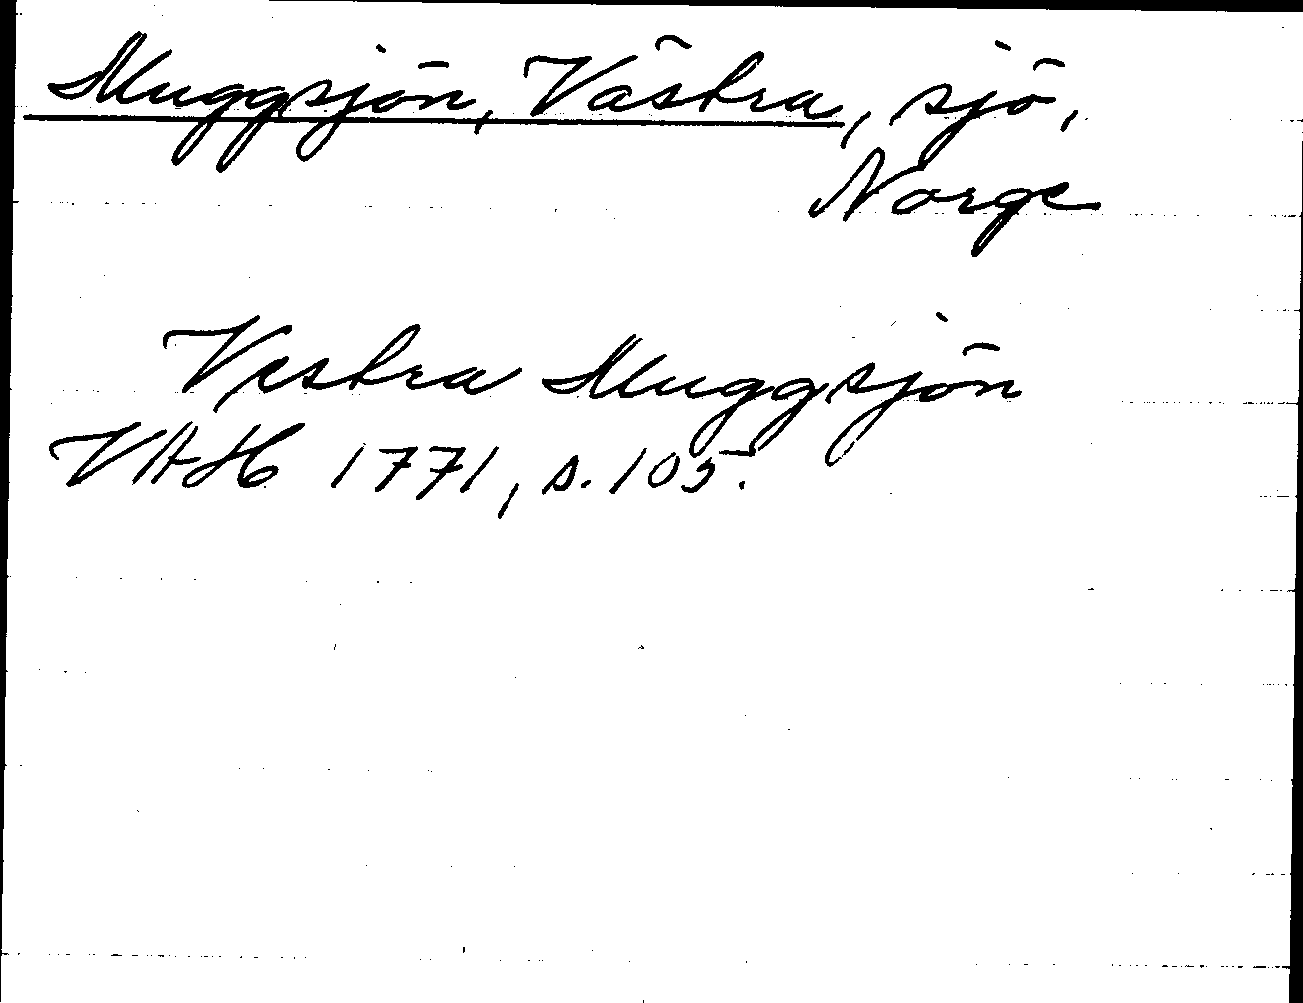 Muggsjön, Västra, sjö,
Norge
Vestra Muggsjön
VAH 1771, s. 105.